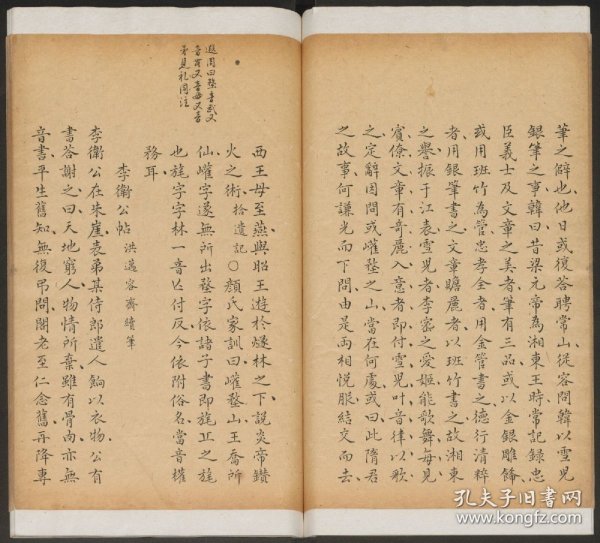 筆之僻也他日或復答聘常山從容問韓以雪兒
銀筆之事韓曰昔梁元帝為湘東王時常記録忠
臣義士及文章之美者筆有三品或以金銀雕飾
或用班竹為管忠孝全者用金管書之德行清粹
者用銀筆書之文章贍麗者以班竹書之故湘東
之譽振于江表雪兒者李密之愛姬能歌舞每見
賓僚文章有奇麗入意者即付雪兒叶音律以歌
之定辭因問或嶉嵍之山當在何處或曰此隋君
之故事何謙光而下問由是兩相悅服結交而去
音
西王母至燕與昭王遊於燧林之下說炎帝鑽
火之術拾遺記○顏氏家訓曰嶉嵍山王喬所
仙嶉字遂無所出嵍字依諸子書即旄丘之旄
也旄字字林一音亾付反今依附俗名當音權
務耳
李衛公帖 洪邁容齋續筆
李衛公在朱崖表弟某侍郎遣人餉以衣物公有
書答謝之曰天地窮人物情所棄雖有骨肉亦無
音書平生舊知無復弔問閣老至仁念舊再降專
孔夫子旧书网
www.kongfz.com